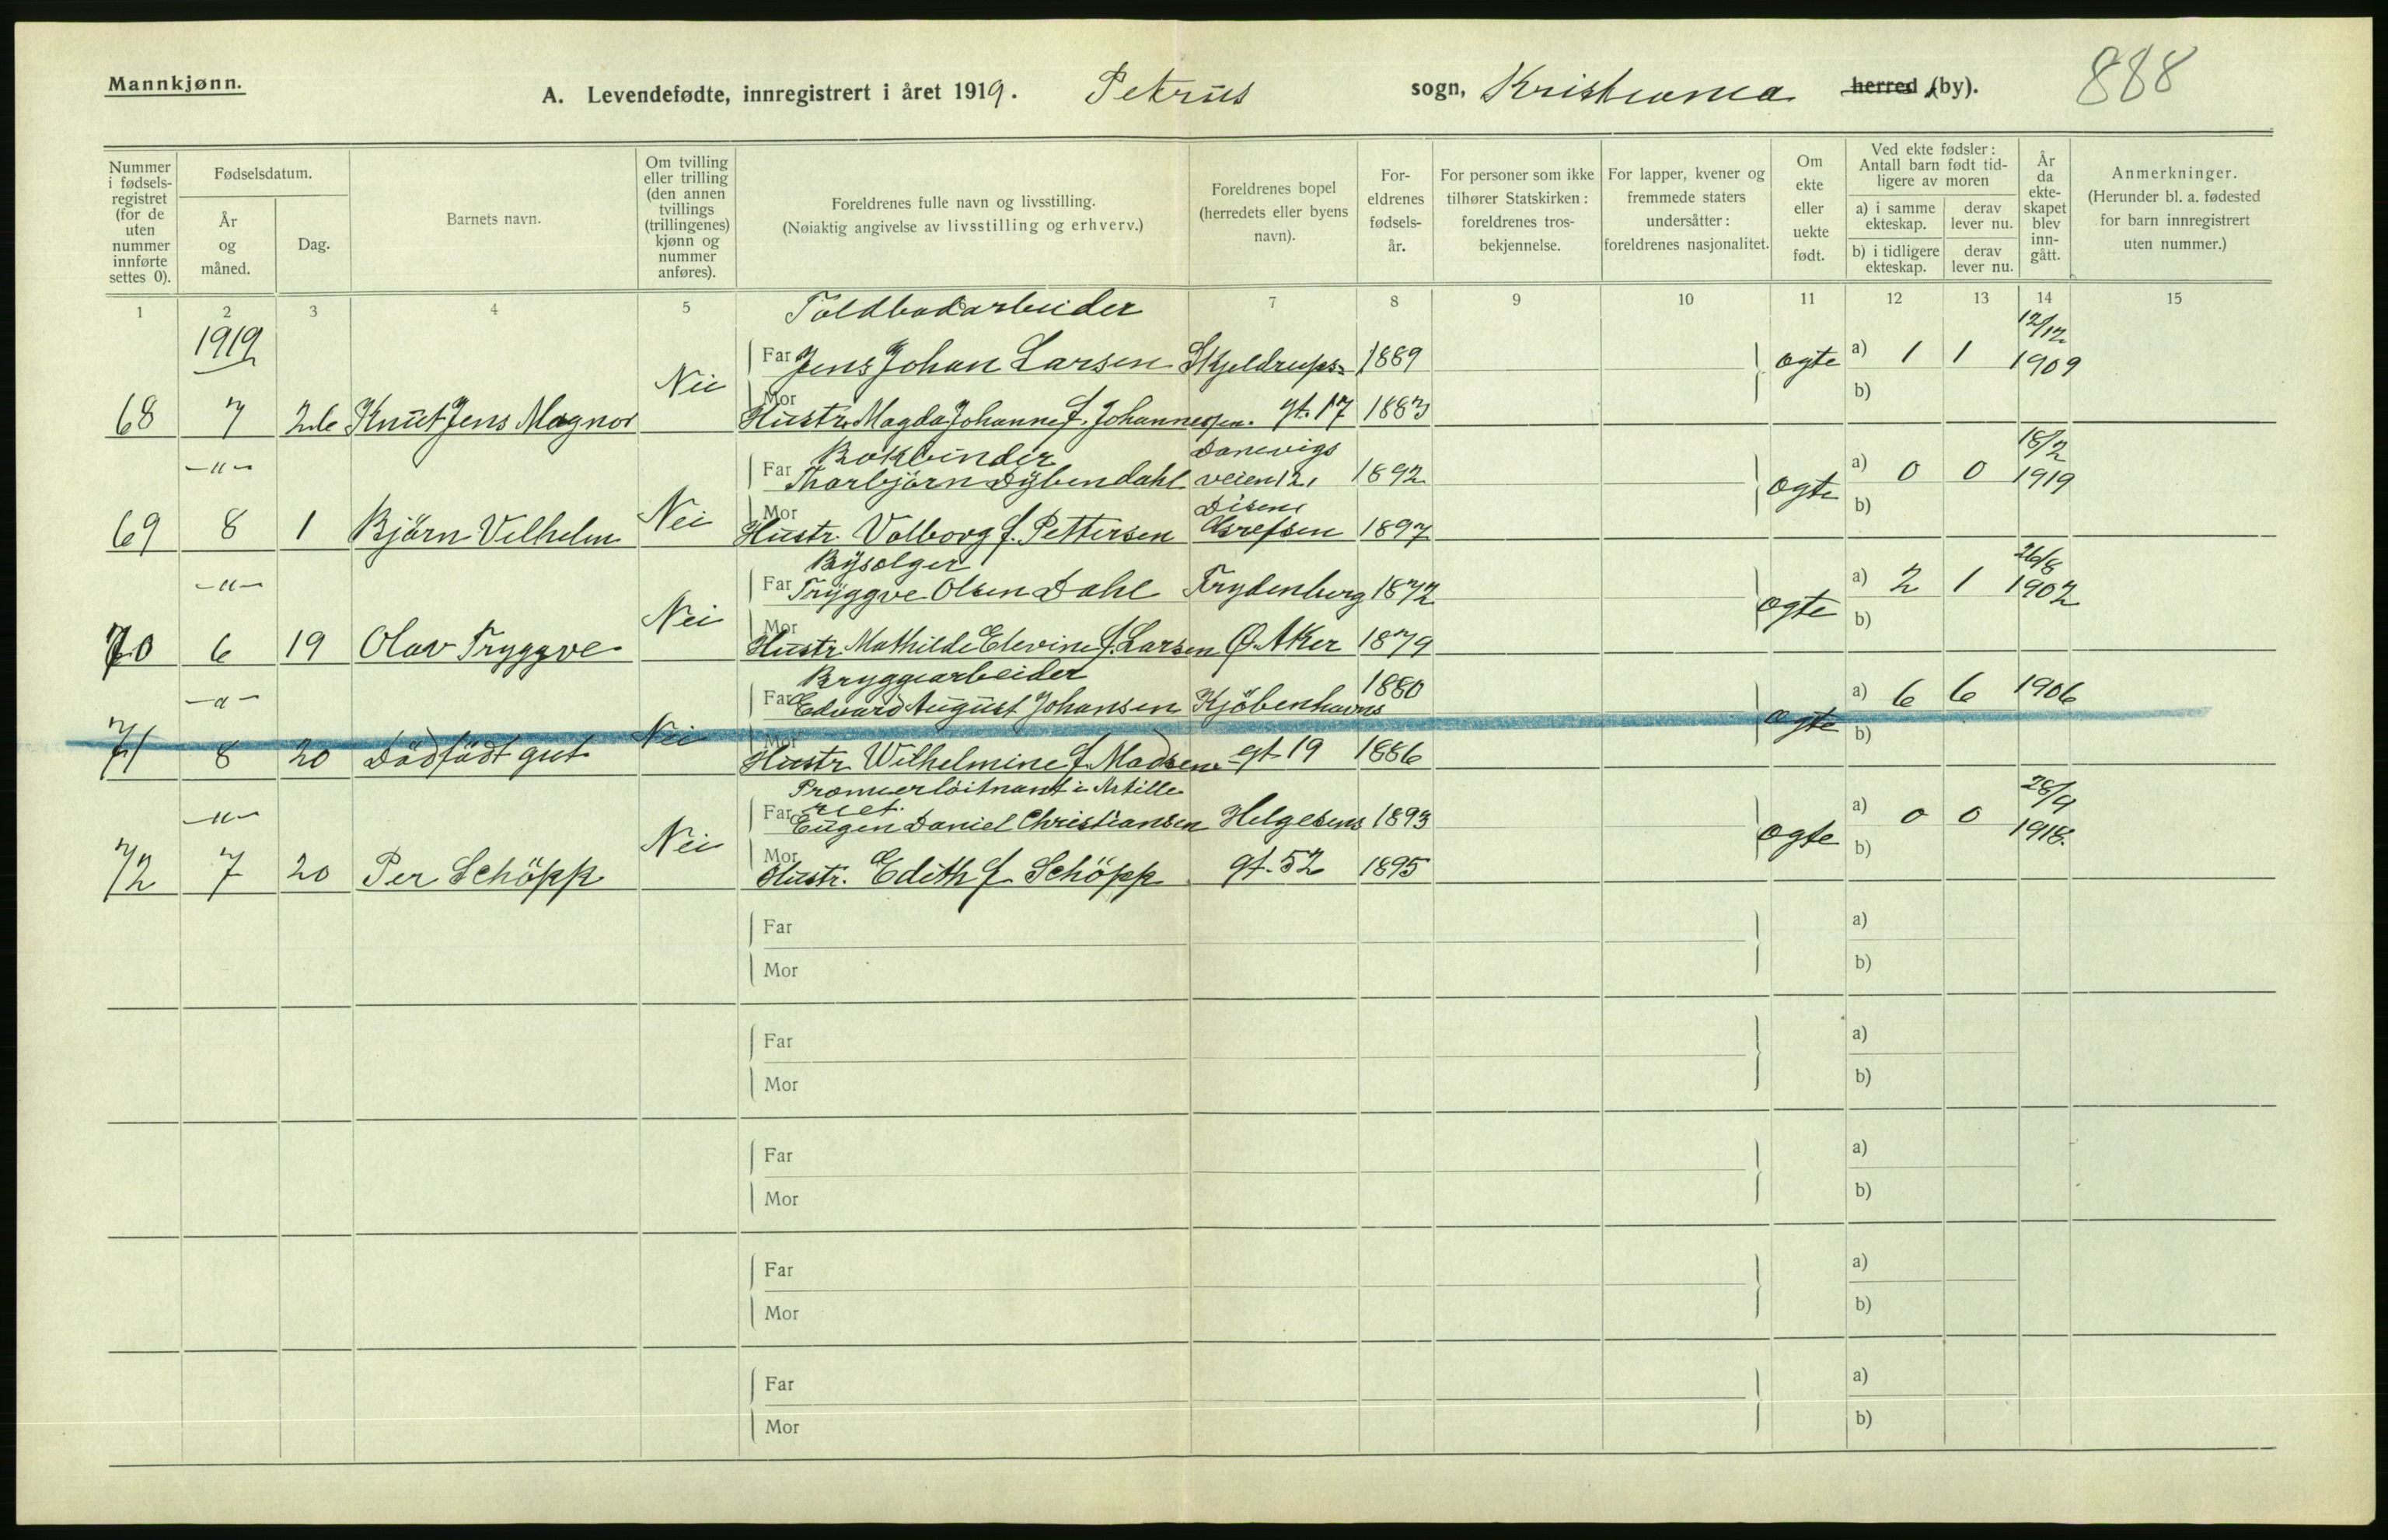 Mannkjønn.
A. Levendefødte, innregistrert i året 1919. Petrus sogn, Kristiania herred (by). 888
Nummer i fødsels-registret (for de uten nummer innførte settes 0).
Fødselsdatum.
År og måned.
Dag.
Barnets navn.
Om tvilling eller trilling (den annen tvillings (trillingenes) kjønn og nummer anføres).
Foreldrenes fulle navn og livsstilling.
(Nøiaktig angivelse av livsstilling og erhverv.)
Foreldrenes bopel (herredets eller byens navn).
For-eldrenes fødsels-år.
For personer som ikke tilhører Statskirken: foreldrenes tros-bekjennelse.
For lapper, kvener og fremmede staters undersåtter: foreldrenes nasjonalitet.
Om ekte eller uekte født.
Ved ekte fødsler: Antall barn født tid-ligere av moren
a) i samme ekteskap.
derav lever nu.
b) i tidligere ekteskap.
derav lever nu.
År da ekte-skapet blev inn-gått.
Anmerkninger.
(Herunder bl. a. fødested for barn innregistrert uten nummer.)
1 2 3 4 5 7 8 9 10 11 12 13 14 15
1919
Toldbodarbeider
Far Jens Johan Larsen Skjeldrups= 1889 ogte a) 1 1 12/12 1909
68 7 26 Knut Jens Magnor Nei Mor Hustr. Magda Johanne f. Johannessen. gt. 17 1883 b)
Bokbinder
-"- Far Thorbjörn Dybendahl Danevigs veien 12, 1892 ogte a) 0 0 18/2 1919
69 8 1 Björn Vilhelm Nei Mor Hustr. Valborg f. Pettersen Disen, Grefsen 1897 b)
Byselger
-"- Far Tryggve Olsen Dahl Frydenberg 1872 ogte a) 2 1 26/8 1902
70 6 19 Olav Tryggve Nei Mor Hustr. Mathilde Elevine f. Larsen Ø. Aker 1879 b)
Bryggearbeider
-"- Far Edvard August Johansen Kjöbenhavns 1880 ogte a) 6 6 1906
71 8 20 Dödfödt gut Nei Mor Hustr. Wilhelmine f. Madsen gt 19 1886 b)
Premierlöitnant i Artilleriet.
-"- Far Eugen Daniel Christiansen Helgesens 1893 ogte a) 0 0 28/9 1918.
72 7 20 Per Schöpp Nei Mor Hustr. Edith f. Schöpp gt. 52 1895 b)
Far a)
Mor b)
Far a)
Mor b)
Far a)
Mor b)
Far a)
Mor b)
Far a)
Mor b)